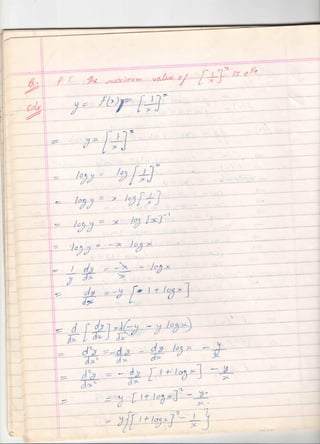 Q:- P.T. the maximum value of [1/x]^x is e^1/e
Soln y = f(x) = [1/x]^x
= y = [1/x]^x
= log y = log [1/x]^x
= log y = x log [1/x]
= log y = x log [x]^-1
= log y = -x log x
= 1/y dy/dx = -x/x - log x
= dy/dx = -y [1 + log x]
= d/dx [dy/dx] = d/dx (-y - y log x)
= d²y/dx² = -dy/dx - dy/dx log x - y/x
= d²y/dx² = -dy/dx [1 + log x] - y/x
= = y [1 + log x]² - y/x
= y{[1 + log x]² - 1/x}